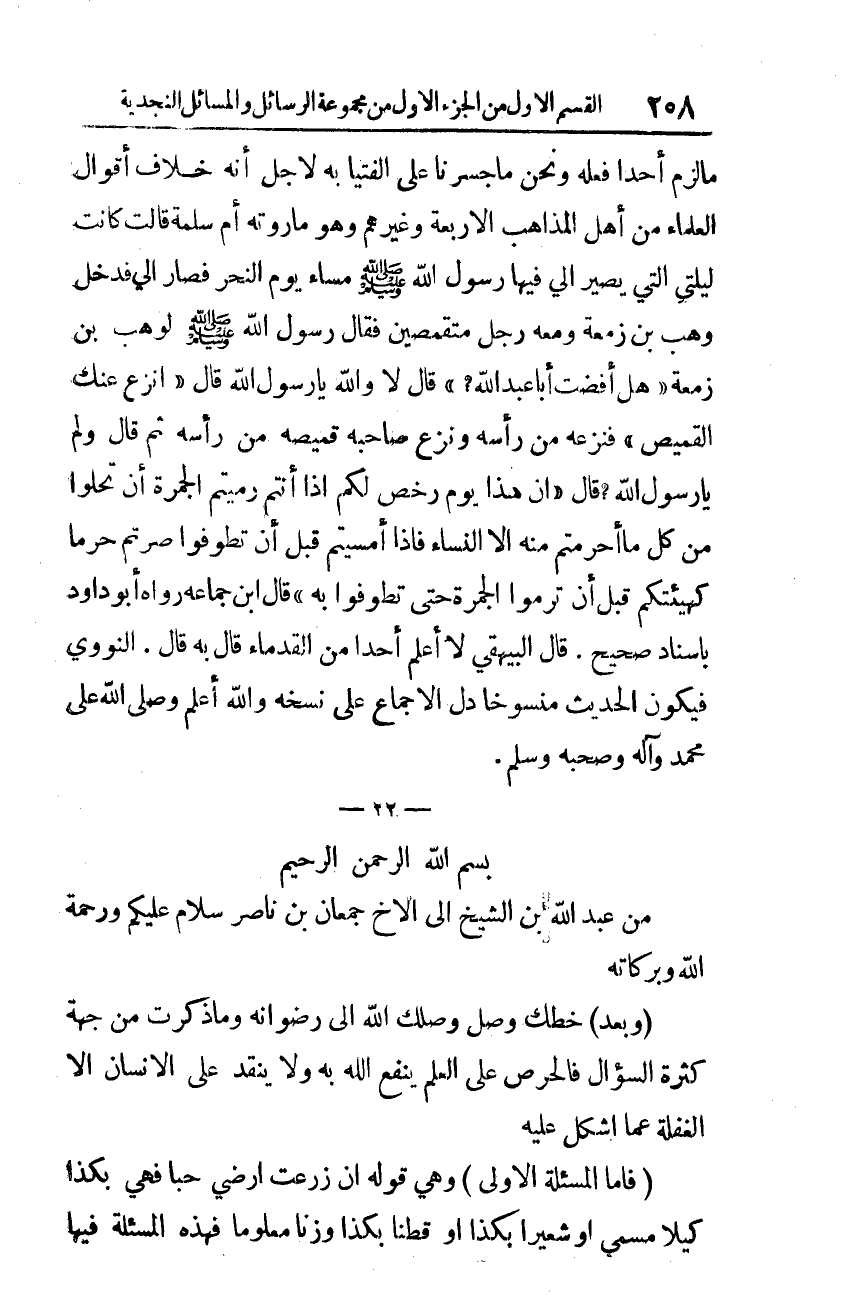 ٢٥٨ القسم الاول من الجزء الاول من مجموعة الرسائل والمسائل النجدية
مالزم أحدا فعله ونحن ماجسرنا على الفتيا به لاجل أنه خلاف أقوال
العلماء من أهل المذاهب الاربعة وغيرهم وهو ماروته أم سلمة قالت كانت
ليلتي التي يصير الي فيها رسول الله ﷺ مساء يوم النحر فصار الي فدخل
وهب بن زمعة ومعه رجل متقمصين فقال رسول الله ﷺ لوهب بن
زمعة « هل أفضت أبا عبدالله؟ » قال لا والله يارسول الله قال « انزع عنك
القميص » فنزعه من رأسه ونزع صاحبه قميصه من رأسه ثم قال ولم
يارسول الله ؟ قال «ان هذا يوم رخص لكم اذا أنتم رميتم الجمرة أن تحلوا
من كل ماأحرمتم منه الا النساء فاذا أمسيتم قبل أن تطوفوا صرتم حرما
كهيئتكم قبل أن ترموا الجمرة حتى تطوفوا به » قال ابن جماعه رواه أبو داود
باسناد صحيح . قال البيهقي لا أعلم أحدا من القدماء قال به قال . النووي
فيكون الحديث منسوخا دل الاجماع على نسخه والله أعلم وصلى الله على
محمد وآله وصحبه وسلم .
— ٢٢ —
بسم الله الرحمن الرحيم
من عبد الله بن الشيخ الى الاخ جمعان بن ناصر سلام عليكم ورحمة
الله وبركاته
(وبعد) خطك وصل وصلك الله الى رضوانه وماذكرت من جهة
كثرة السؤال فالحرص على العلم ينفع الله به ولا ينقد على الانسان الا
الغفلة عما اشكل عليه
( فاما المسئلة الاولى ) وهي قوله ان زرعت ارضي حبا فهي بكذا
كيلا مسمي او شعيرا بكذا او قطنا بكذا وزنا معلوما فهذه المسئلة فيها